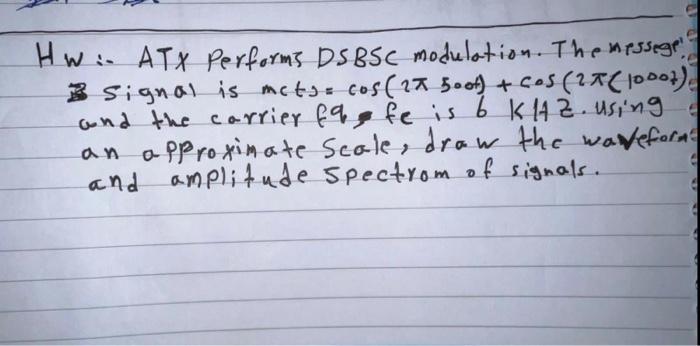 Hw :- ATX Performs DSBSC modulation. The messege
signal is m(t)= cos(2π 500t) + cos(2π(1000t))
and the carrier fq, fc is 6 KHZ. using
an approximate Scale, draw the waveforms
and amplitude spectrom of signals.